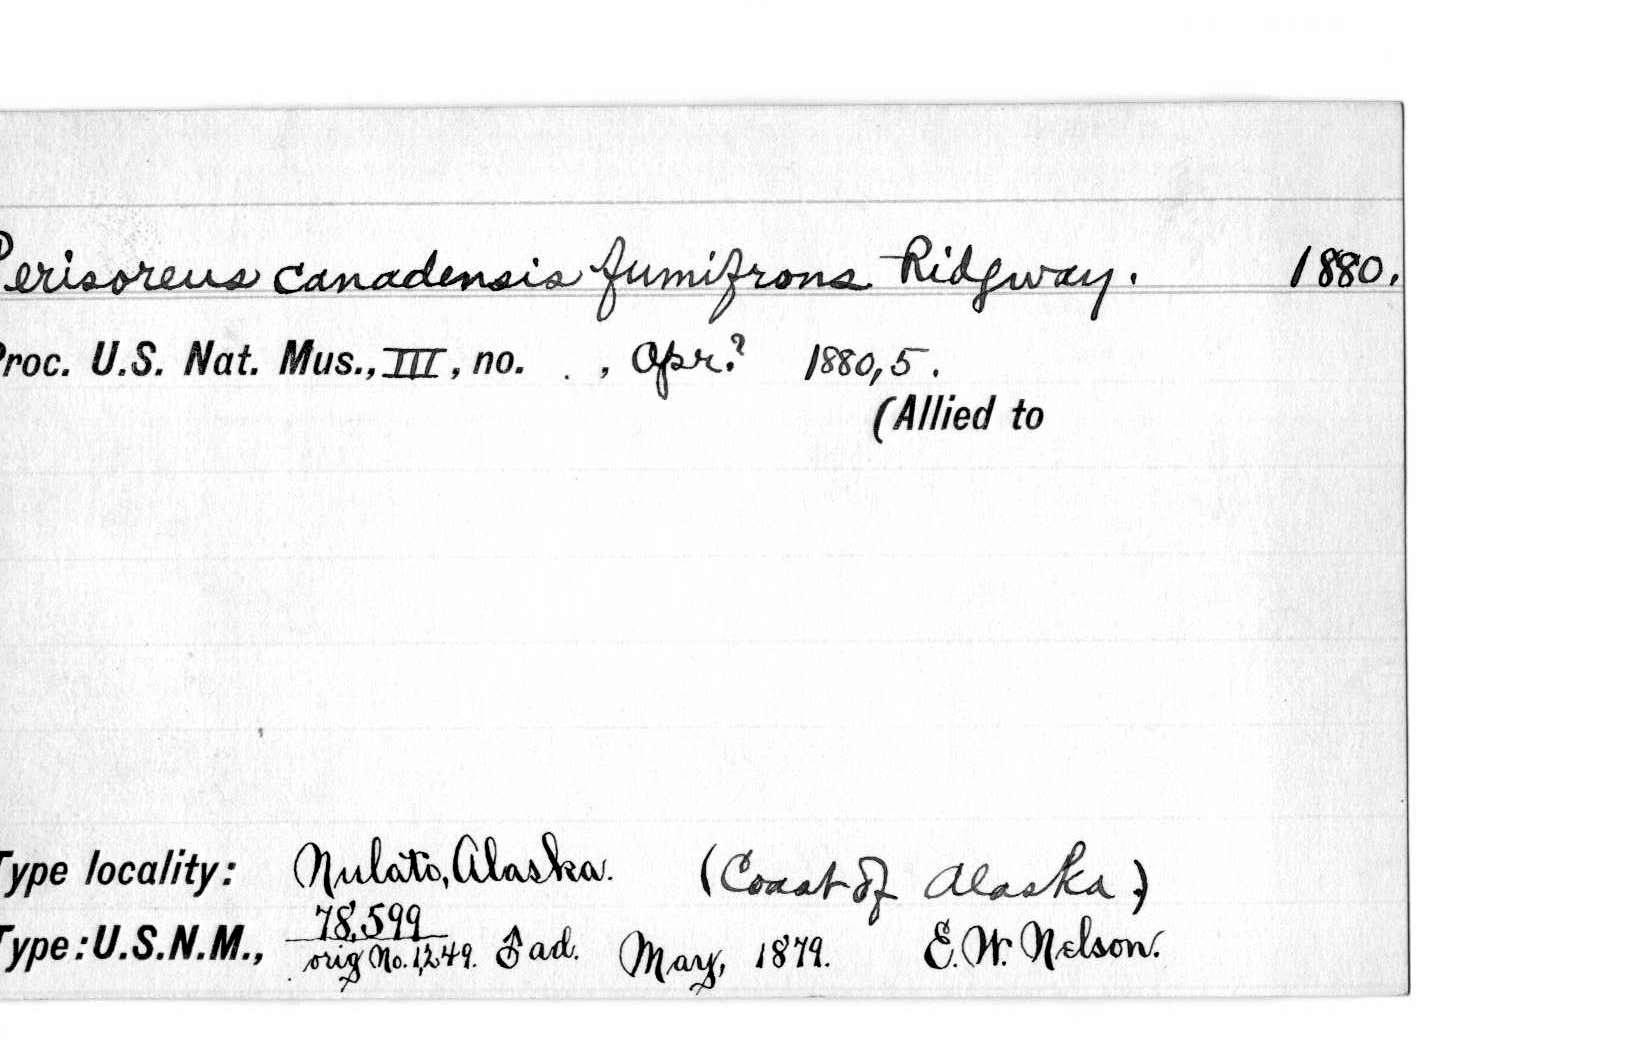 Perisoreus canadensis fumifrons Ridgway. 1880.
Proc. U.S. Nat. Mus., III, no. . , Apr.? 1880, 5.
(Allied to
Type locality: Nulato, Alaska. (Coast of Alaska)
78,599
Type: U.S.N.M., orig No. 1,249. ♂ ad. May, 1879. E. W. Nelson.